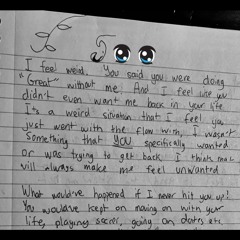 I feel weird. You said you were doing
"Great" without me. And I feel like you
didn't even want me back in your life
It's a weird situation that I feel you
just went with the flow with, I wasn't
something that YOU specifically wanted
or was trying to get back. I think that
will always make me feel unwanted
What would've happened if I never hit you up?
You would've kept on moving on with your
life, playing soccer, going on dates etc